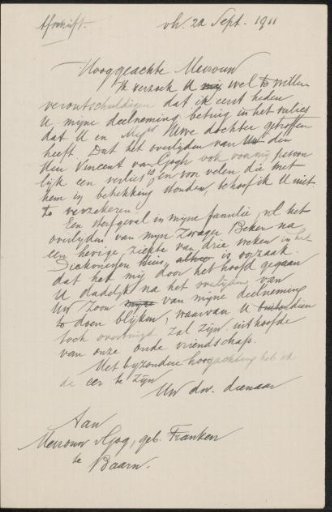 Afschrift. vh 22 Sept. 1911
Hooggeachte Mevrouw
Ik verzoek U mij wel te willen
verontschuldigen dat ik eerst heden
U mijne deelneming betuig in het verlies
dat U en Uwe dochter getroffen
heeft. Dat het overlijden van den
Heer Vincent van Gogh ook voor mij persoon
lijk een verlies is, en voor velen die met
hem in betrekking stonden, behoef ik U niet
te verzekeren.
Een sterfgeval in mijne familie, nl. het
overlijden van mijn Zwager Beken na
een hevige ziekte van drie weken in het
Diakonessen huis, is oorzaak
dat het mij door het hoofd gegaan
U dadelijk na het overlijden van
Uw Zoon van mijne deelneming
te doen blijken, waarvan U
toch overtuigd zal zijn uit hoofde
van onze oude vriendschap.
Met byzondere hoogachting heb ik
de eer te zijn
Uw dw. dienaar
Aan
Mevrouw v Gogh, geb. Franken
te
Baarn.